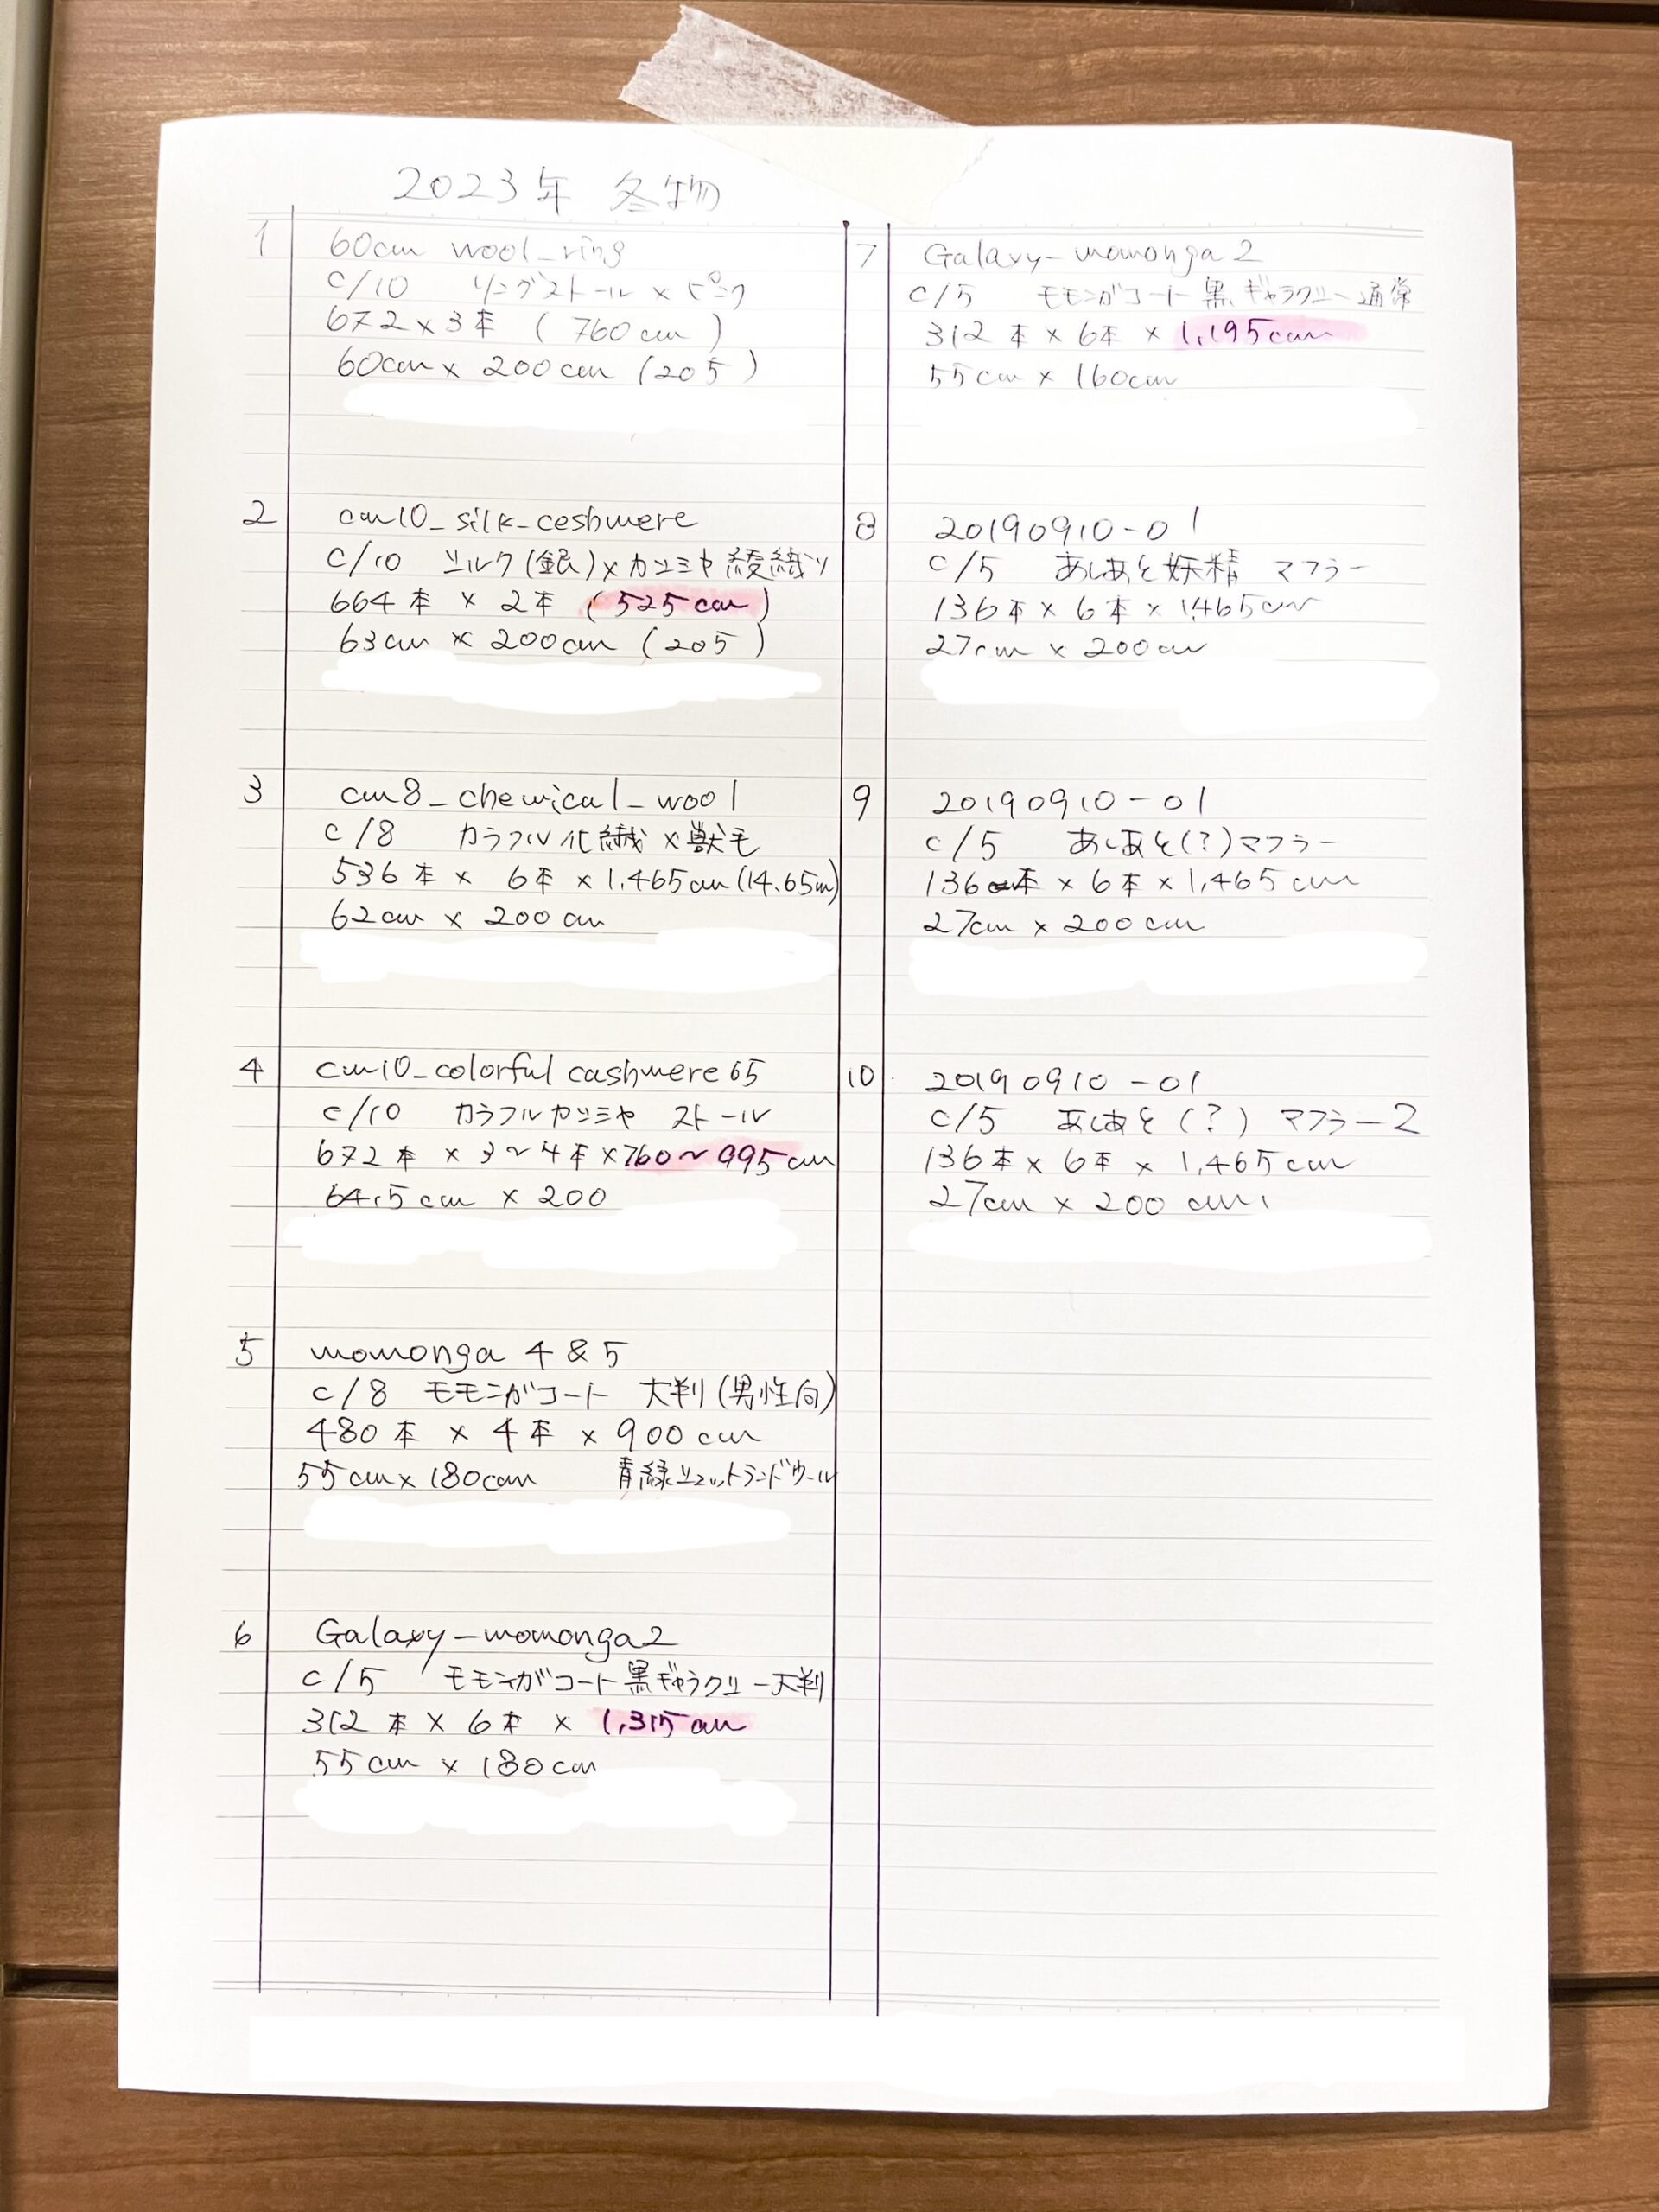 2023年 冬物
1
60cm wool_ring
c/10 リングストール × ピンク
672×3本 (760cm)
60cm × 200cm (205)
2
cm10_silk_ceshmere
c/10 シルク(銀)×カシミヤ 綾織り
664本 × 2本 (525cm)
63cm × 200cm (205)
3
cm8_chemical_wool
c/8 カラフル化繊×獣毛
536本 × 6本 ×1,465cm(14.65m)
62cm × 200cm
4
cm10_colorful cashmere65
c/10 カラフルカシミヤ ストール
672本 × 3~4本×760~995cm
64.5cm × 200
5
momonga 4&5
c/8 モモンガコート 大判(男性向)
480本 × 4本 × 900cm
55cm×180cm 青緑シェットランドウール
6
Galaxy-momonga2
c/5 モモンガコート黒ギャラクシー大判
312本 × 6本 × 1,315cm
55cm × 180cm
7
Galaxy-momonga2
c/5 モモンガコート黒ギャラクシー通常
312本 × 6本 × 1,195cm
55cm × 160cm
8
20190910-01
c/5 あしあと妖精 マフラー
136本 × 6本 × 1465cm
27cm × 200cm
9
20190910-01
c/5 あしあと(?)マフラー
136本 × 6本 × 1,465cm
27cm × 200cm
10
20190910-01
c/5 あしあと(?) マフラー2
136本 × 6本 × 1,465cm
27cm × 200cm